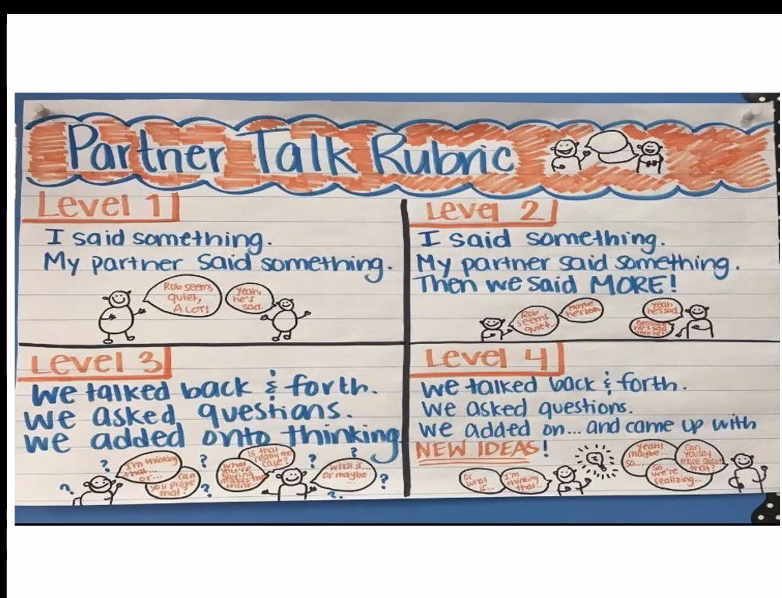 Partner Talk Rubric
Level 1
I said something.
My partner said something.
Rob seems
quiet,
A LOT!
Yeah,
he's
sad.
Level 2
I said something.
My partner said something.
Then we said MORE!
Rob
seems
quiet...
Maybe
he's both
Yeah
he's sad.
Because
he's sad
Level 3
We talked back & forth.
We asked questions.
We added onto thinking
I'm thinking
that...
or...
Can
you prove
that?
Is that
case?
What
you're
saying
makes me
think
What if...
Or maybe
...
Level 4
We talked back & forth.
We asked questions.
We added on... and came up with
NEW IDEAS!
Or
what
if...
I'm
thinking
that...
Yeah!
maybe...
so...
So
we're
realizing...
Can
you say
more about
that?